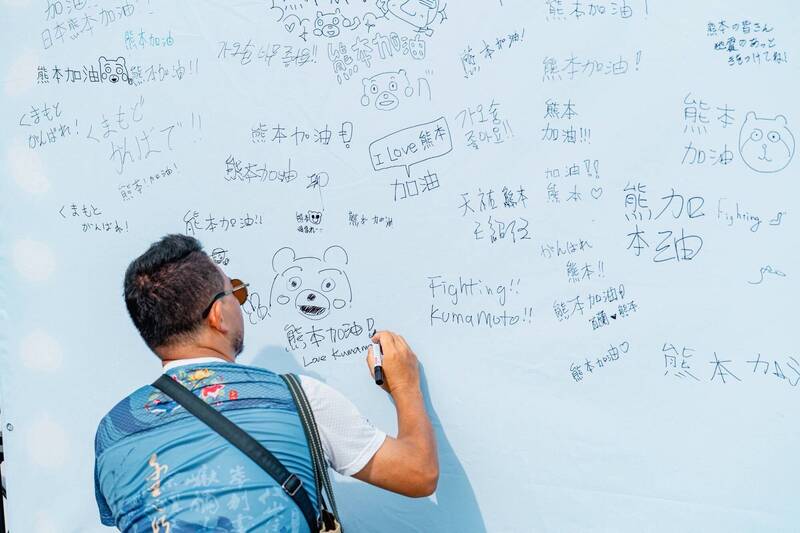 熊本加油!
日本熊本加油!
熊本加油
熊本加油
熊本加油!!
くまもと
がんばれ!
くまもと
がんばで!!
熊本加油!
くまもと
がんばれ!
熊本加油!!
熊本加油!
熊本加油
熊本
熊本加油
熊本加油
가오슝
좋아요!!
I Love 熊本
加油
熊本加油!
熊本加油!
熊本加油!
熊本
加油!!!
加油!!
熊本♡
天祐熊本
がんばれ
熊本!!
熊本加油!
熊本
熊本加油♡
Fighting!!
Kumamoto!!
熊本加油!
Love Kumam
熊本の皆さん
地震のあと
気をつけてね!
熊本
加油
熊加
本油
Fighting
熊本加油